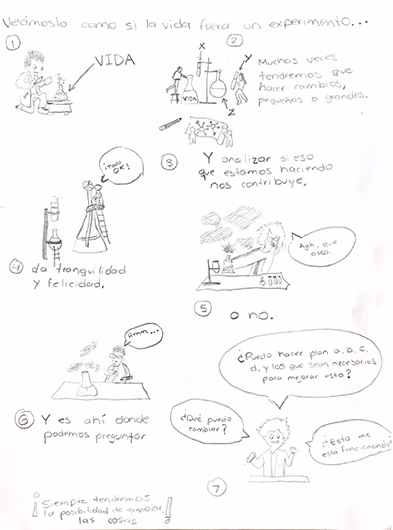 Veámoslo como si la vida fuera un experimento...
1
VIDA
2
X
Y
Z
VIDA
Muchas veces
tendremos que
hacer cambios,
pequeños o grandes.
3
Y analizar si eso
que estamos haciendo
nos contribuye,
¡Todo
OK!
4
da tranquilidad
y felicidad,
Agh, que
5
o no.
Hmm...
6
Y es ahí donde
podemos preguntar
¿Qué puedo
cambiar?
¿Puedo hacer plan a, b, c,
d, y los que sean necesarios
para mejorar esto?
¿Esto me
está funcionando?
7
¡Siempre tendremos
la posibilidad de cambiar
las cosas!